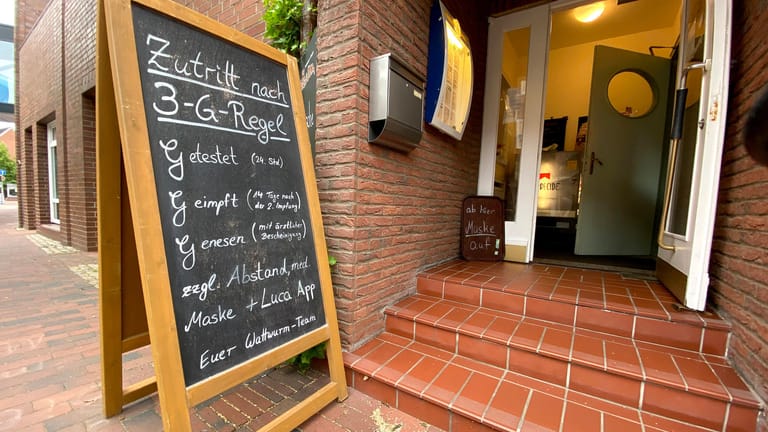 Zutritt nach
3-G-Regel
Getestet (24. Std)
Geimpft (14 Tage nach
der 2. Impfung)
Genesen (mit ärztlicher
Bescheinigung)
zzgl. Abstand, med.
Maske + Luca App
Euer Wattwurm-Team
ab hier
Maske
auf
DECIDE